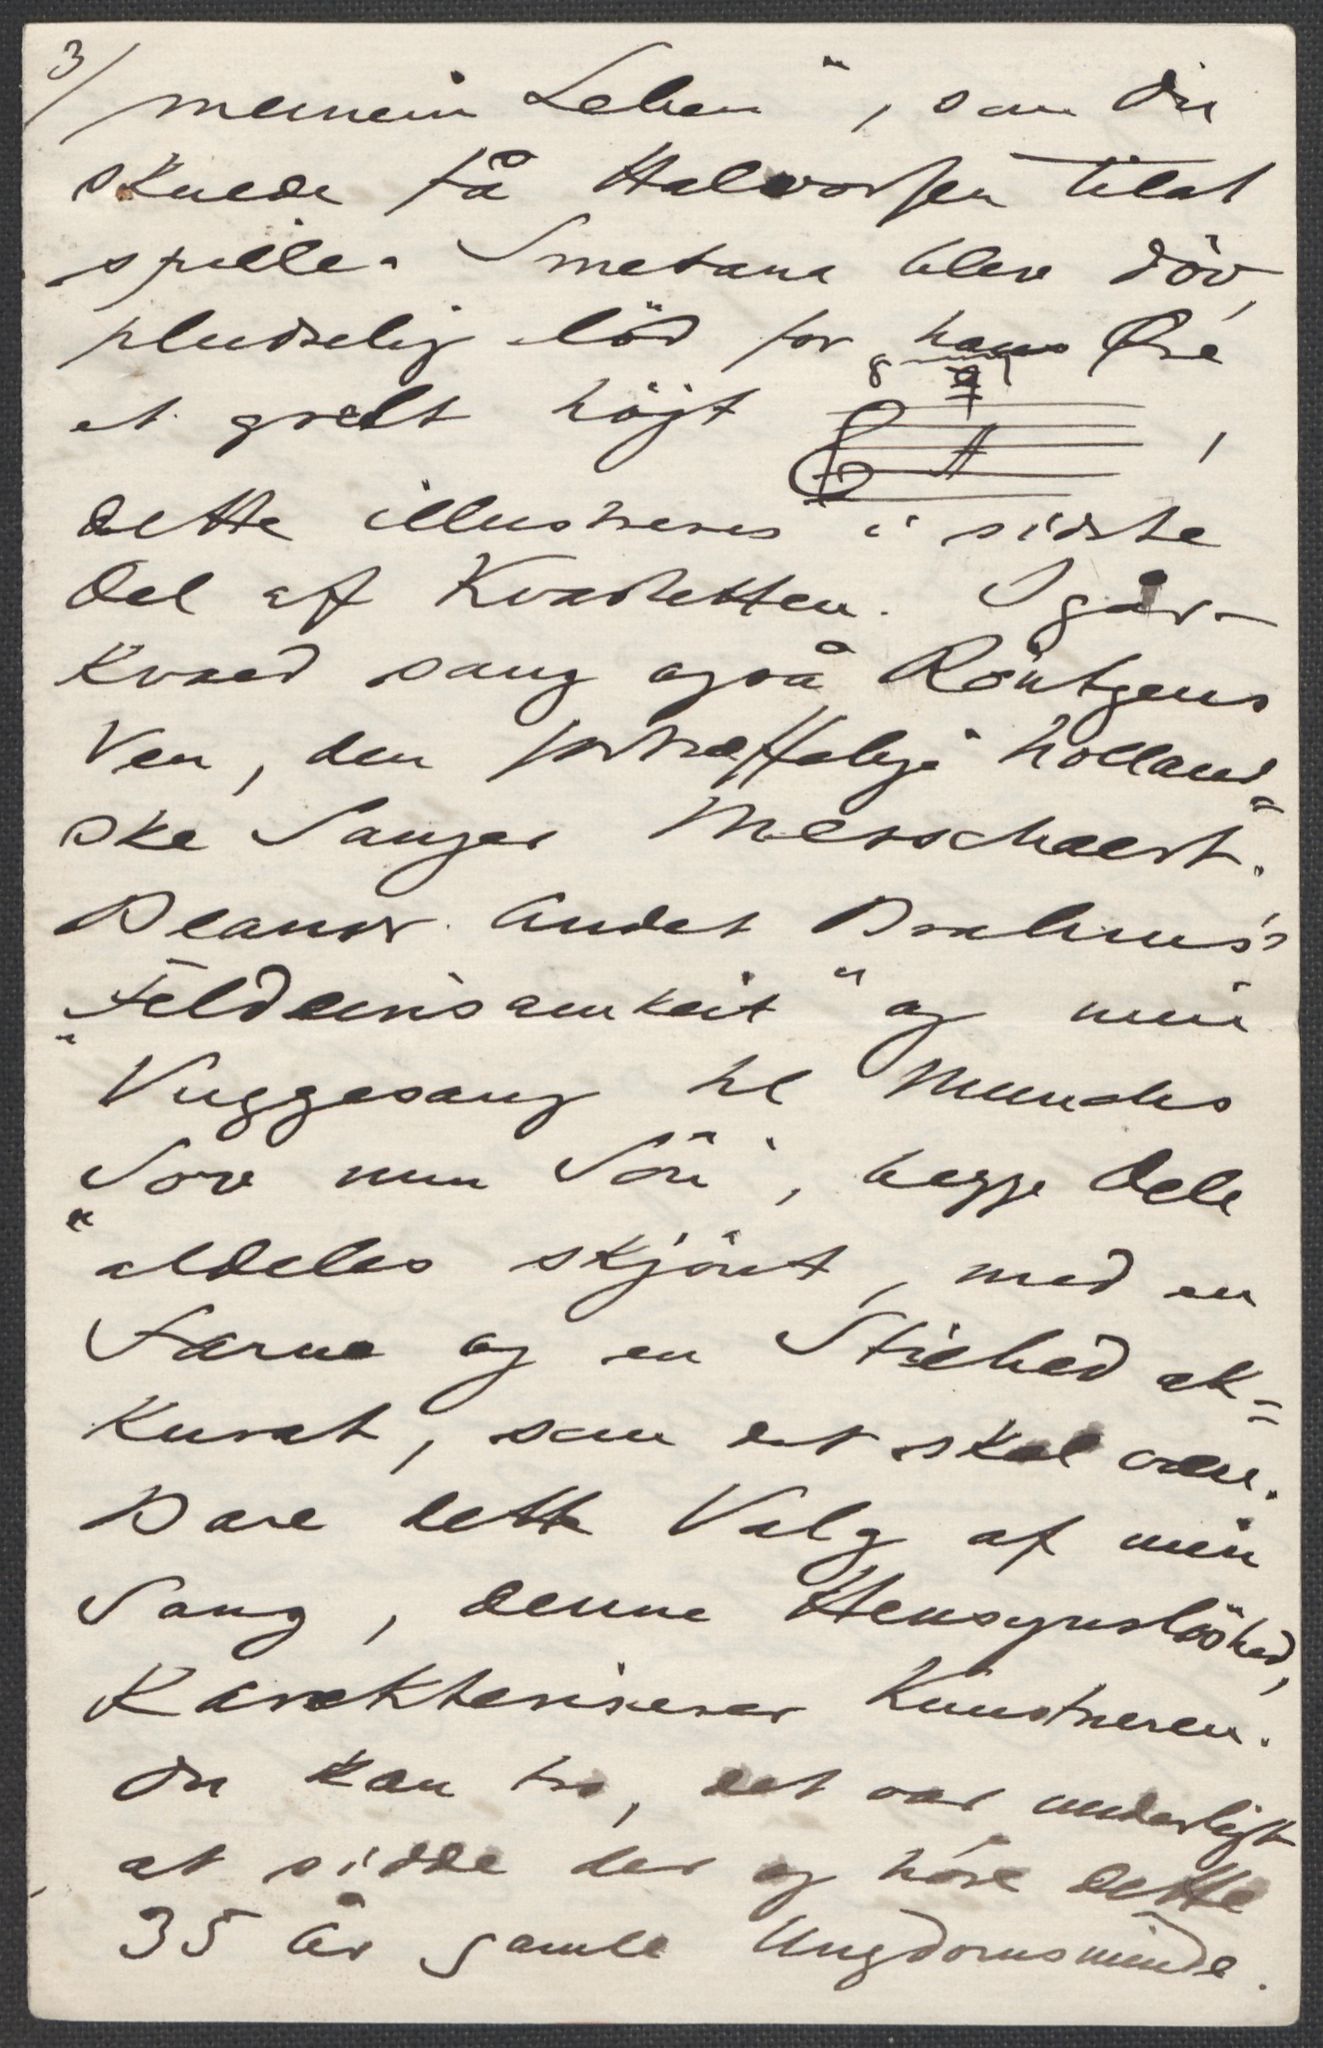 3/
meinem Leben", som Du
skulde få Halvorsen tilat
spille. Smetana blev döv,
pludselig löd for hans Øre
et grelt højt 8
,
dette illustreres i sidste
Del af Kvartetten. Igår-
kvæld sang også Röntgens
Ven, den fortræffelige holland=
ske Sanger Messchaert.
Blandt Andet Brahms's
„Feldeinsamkeit" og min
Vuggesang til Munchs
„Sov min Sön", begge Dele
aldeles skjönt, med en
Farve og en Stilhed ak=
kurat, som det skal være.
Bare dette Valg af min
Sang, denne Hensynslöshed,
karakteriserer Kunstneren.
Du kan tro, det var underligt
at sidde der og höre dette
35 år gamle Ungdomsminde.